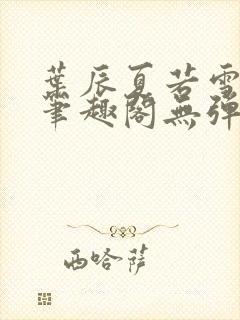 葉辰夏若雪
筆趣閣無彈
西哈萨